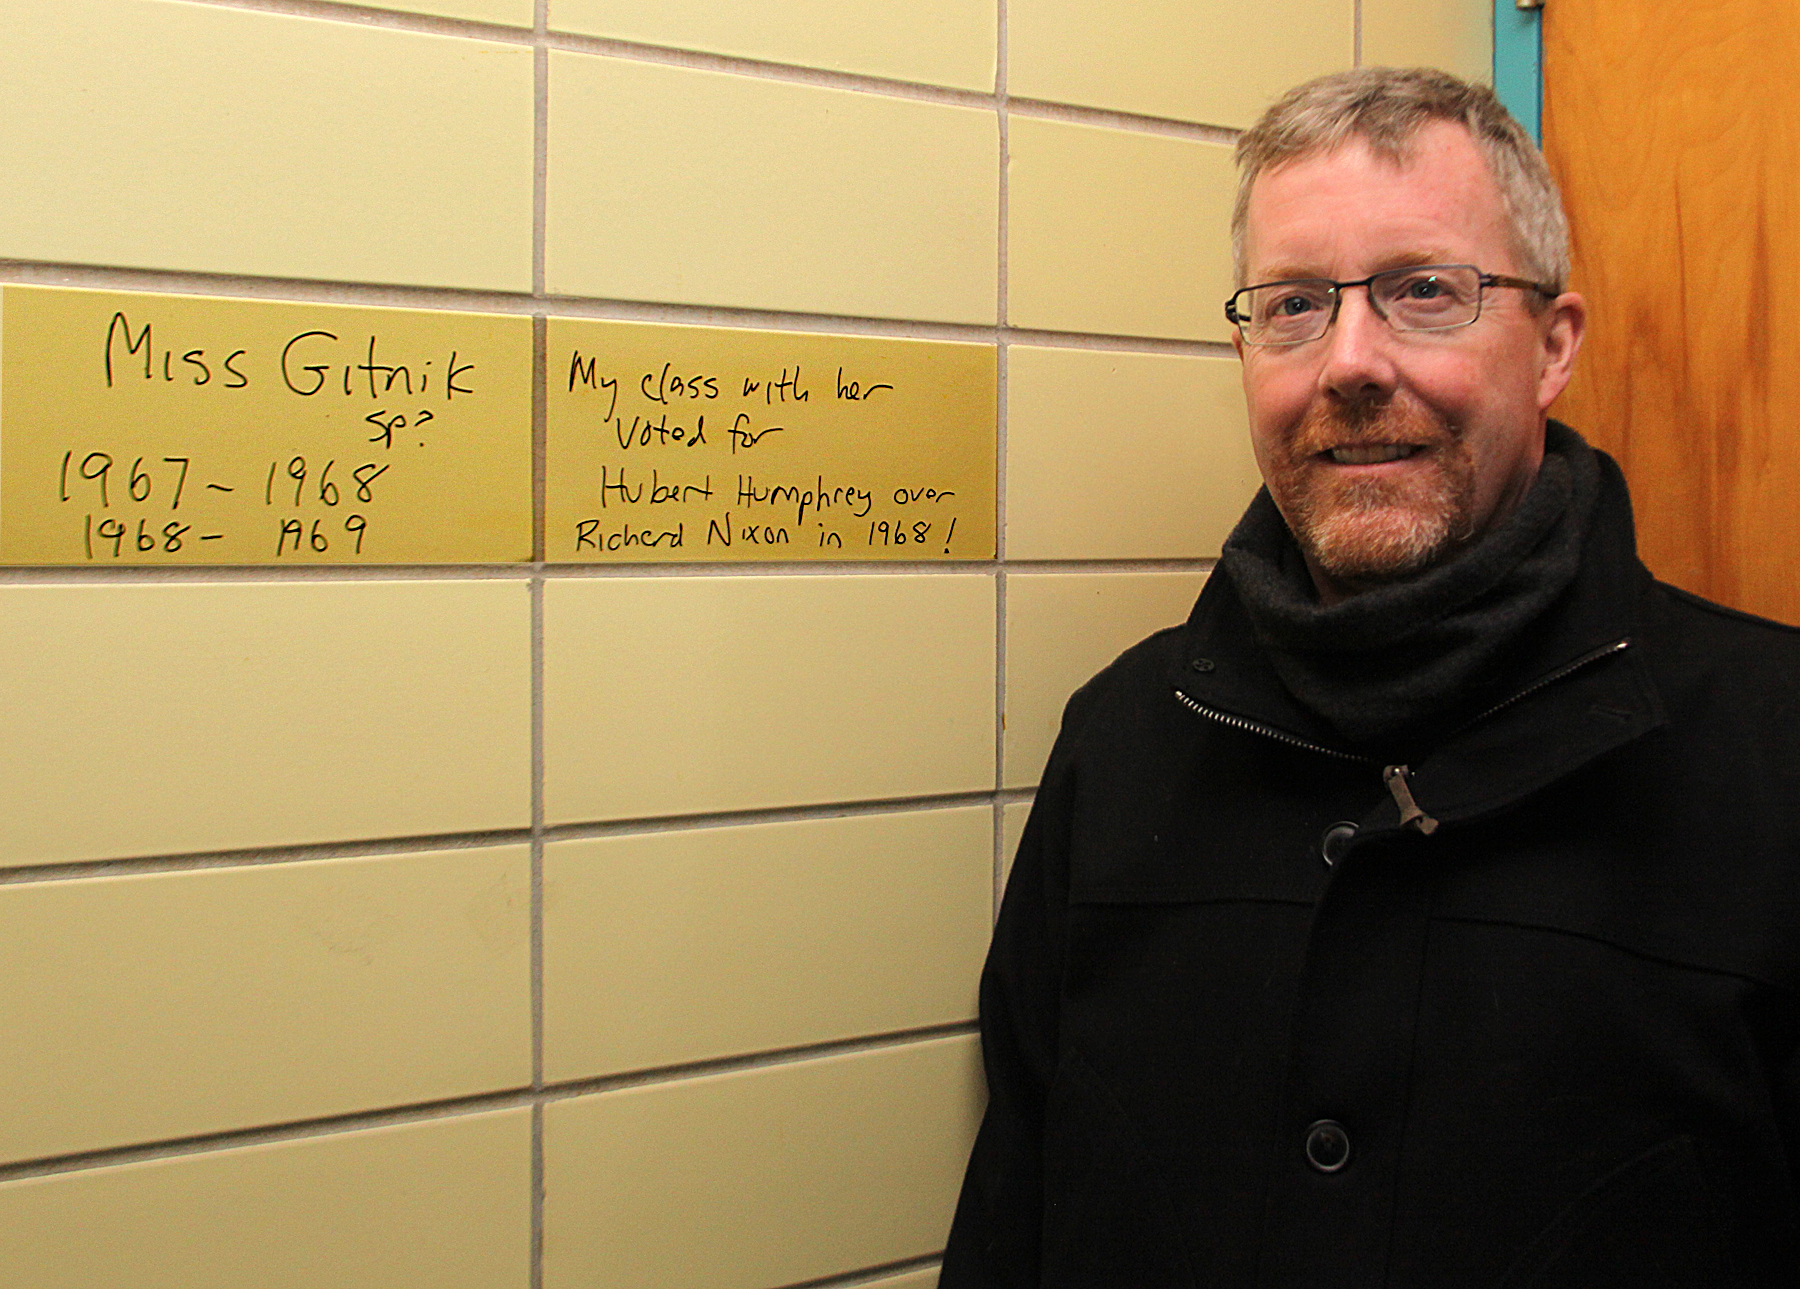 Miss Gitnik
sp?
1967 - 1968
1968 - 1969
My class with her
Voted for
Hubert Humphrey over
Richard Nixon in 1968!